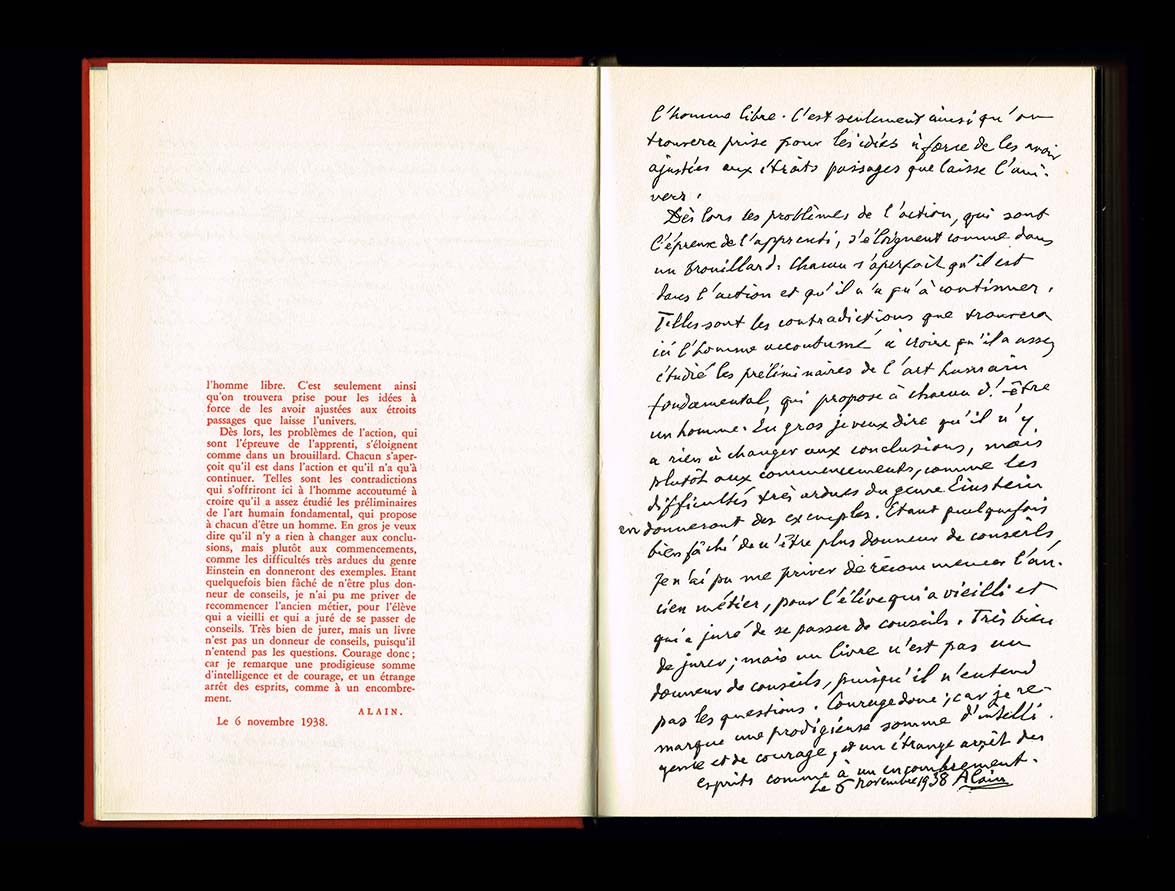 l'homme libre. C'est seulement ainsi
qu'on trouvera prise pour les idées à
force de les avoir ajustées aux étroits
passages que laisse l'univers.
Dès lors, les problèmes de l'action, qui
sont l'épreuve de l'apprenti, s'éloignent
comme dans un brouillard. Chacun s'aper-
çoit qu'il est dans l'action et qu'il n'a qu'à
continuer. Telles sont les contradictions
qui s'offriront ici à l'homme accoutumé à
croire qu'il a assez étudié les préliminaires
de l'art humain fondamental, qui propose
à chacun d'être un homme. En gros je veux
dire qu'il n'y a rien à changer aux conclu-
sions, mais plutôt aux commencements,
comme les difficultés très ardues du genre
Einstein en donneront des exemples. Etant
quelquefois bien fâché de n'être plus don-
neur de conseils, je n'ai pu me priver de
recommencer l'ancien métier, pour l'élève
qui a vieilli et qui a juré de se passer de
conseils. Très bien de jurer, mais un livre
n'est pas un donneur de conseils, puisqu'il
n'entend pas les questions. Courage donc ;
car je remarque une prodigieuse somme
d'intelligence et de courage, et un étrange
arrêt des esprits, comme à un encombre-
ment.
ALAIN.
Le 6 novembre 1938.
l'homme libre. C'est seulement ainsi qu'on
trouvera prise pour les idées à force de les avoir
ajustées aux étroits passages que laisse l'uni-
vers.
Dès lors les problèmes de l'action, qui sont
l'épreuve de l'apprenti, s'éloignent comme dans
un brouillard. Chacun s'aperçoit qu'il est
dans l'action et qu'il n'a qu'à continuer.
Telles sont les contradictions que trouvera
ici l'homme accoutumé à croire qu'il a assez
étudié les préliminaires de l'art humain
fondamental, qui propose à chacun d'être
un homme. En gros je veux dire qu'il n'y
a rien à changer aux conclusions, mais
plutôt aux commencements, comme les
difficultés très ardues du genre Einstein
en donneront des exemples. Etant quelquefois
bien fâché de n'être plus donneur de conseils,
je n'ai pu me priver de recommencer l'an-
cien métier, pour l'élève qui a vieilli et
qui a juré de se passer de conseils. Très bien
de jurer ; mais un livre n'est pas un
donneur de conseils, puisqu'il n'entend
pas les questions. Courage donc ; car je re-
marque une prodigieuse somme d'intelli-
gence et de courage, et un étrange arrêt des
esprits comme à un encombrement.
Le 6 novembre 1938 Alain